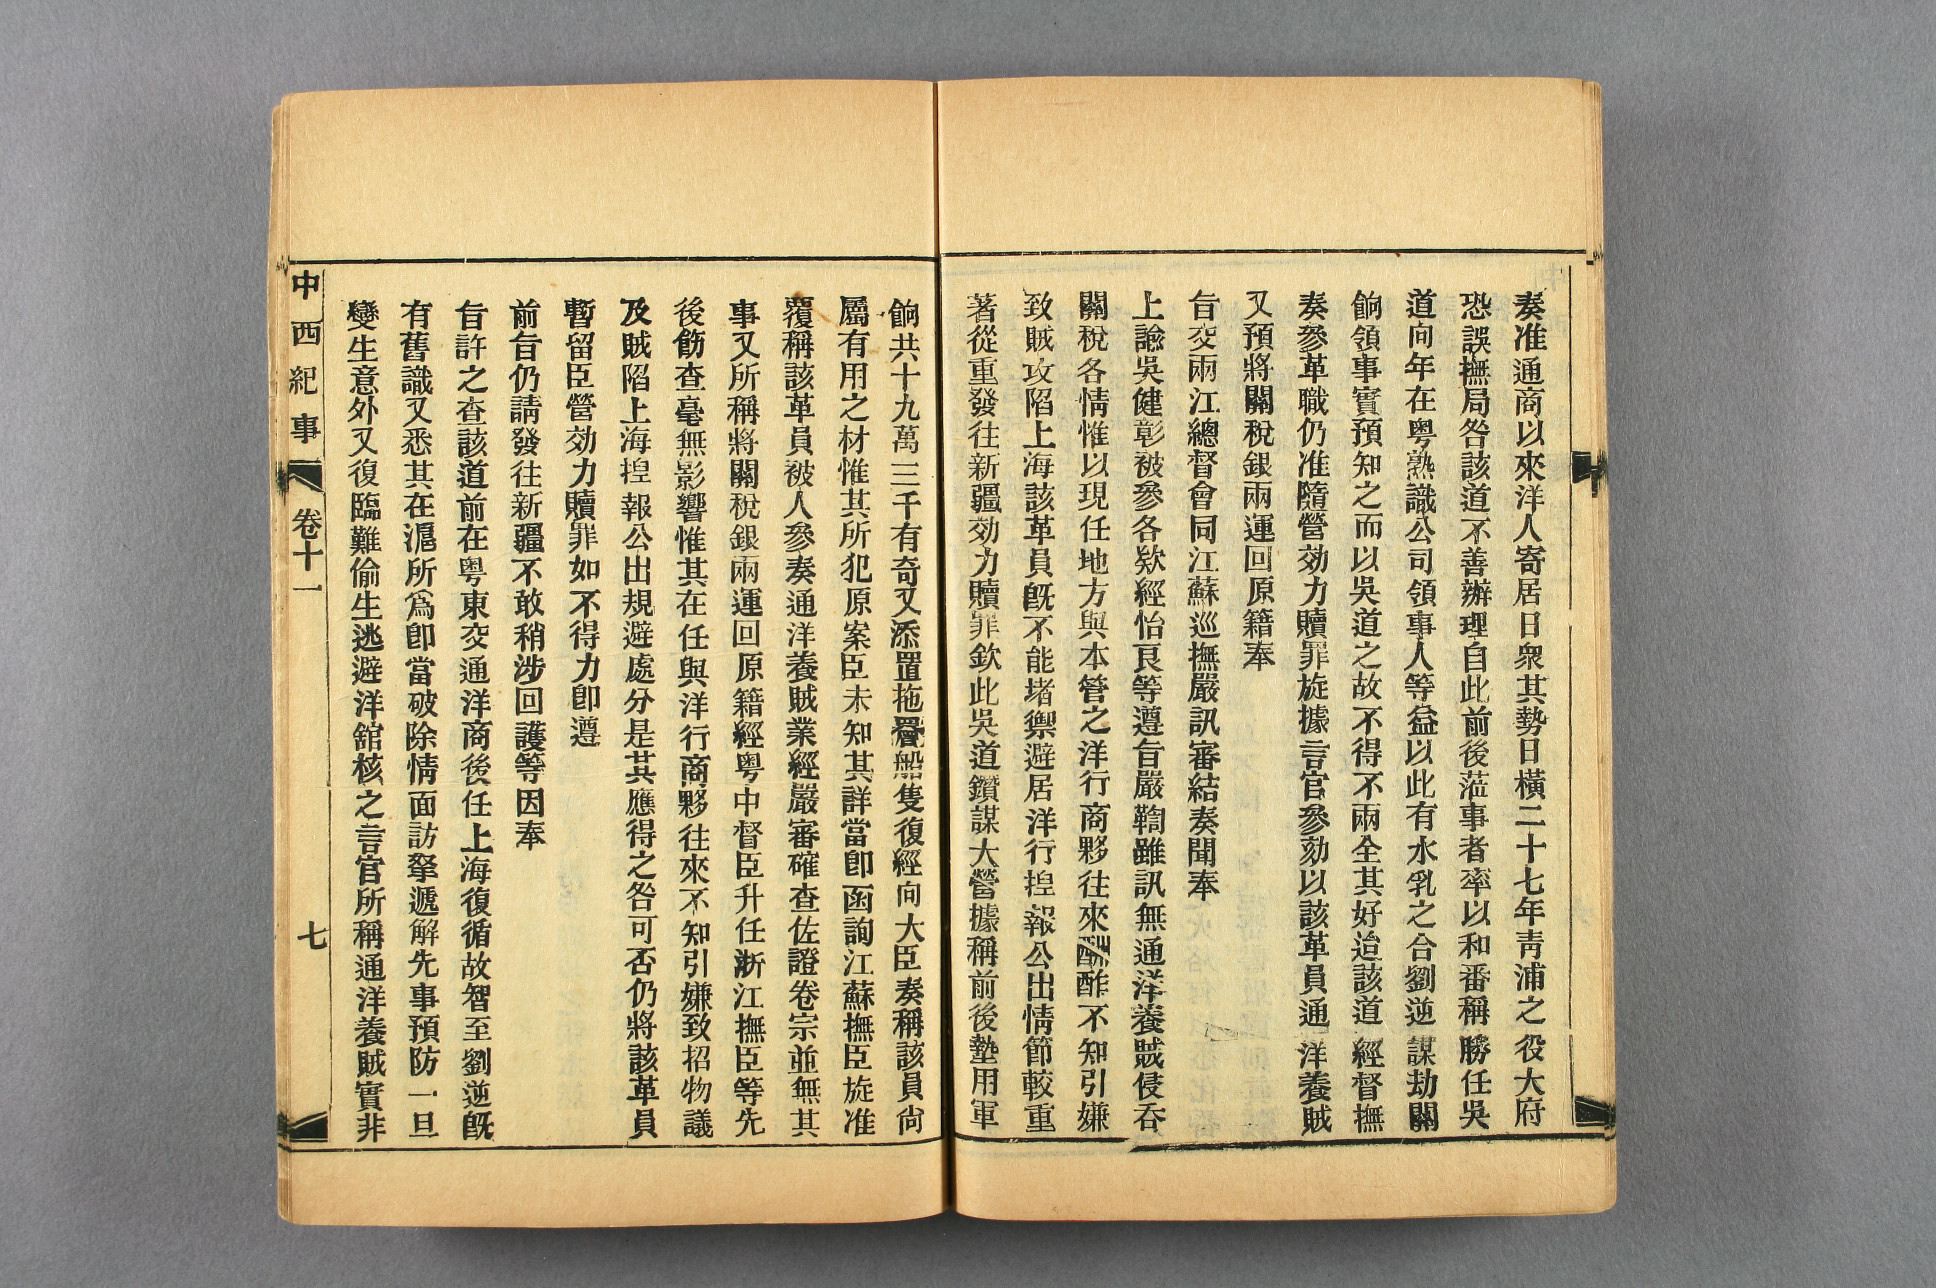 奏准通商以來洋人寄居日衆其勢日橫二十七年青浦之役大府
恐誤撫局咎該道不善辦理自此前後蒞事者率以和番稱勝任吳
道向年在粵熟識公司領事人等益以此有水乳之合劉逆謀劫關
餉領事實預知之而以吳道之故不得不兩全其好迨該道經督撫
奏參革職仍准隨營効力贖罪旋據言官參劾以該革員通洋養賊
又預將關稅銀兩運回原籍奉
旨交兩江總督會同江蘇巡撫嚴訊審結奏聞奉
上諭吳健彰被參各欵經怡良等遵旨嚴鞫雖訊無通洋養賊侵吞
關稅各情惟以現任地方與本管之洋行商夥往來酬酢不知引嫌
致賊攻陷上海該革員旣不能堵禦避居洋行揑報公出情節較重
著從重發往新疆効力贖罪欽此吳道鑽謀大營據稱前後墊用軍
餉共十九萬三千有奇又添置拖罾船隻復經向大臣奏稱該員尙
屬有用之材惟其所犯原案臣未知其詳當卽函詢江蘇撫臣旋准
覆稱該革員被人參奏通洋養賊業經嚴審確查佐證卷宗並無其
事又所稱將關稅銀兩運回原籍經粵中督臣升任浙江撫臣等先
後飭查毫無影響惟其在任與洋行商夥往來不知引嫌致招物議
及賊陷上海揑報公出規避處分是其應得之咎可否仍將該革員
暫留臣營効力贖罪如不得力卽遵
前旨仍請發往新疆不敢稍涉回護等因奉
旨許之查該道前在粵東交通洋商後任上海復循故智至劉逆旣
有舊識又悉其在滬所爲卽當破除情面訪拏遞解先事預防一旦
變生意外又復臨難偷生逃避洋舘核之言官所稱通洋養賊實非
中西紀事 卷十一 七